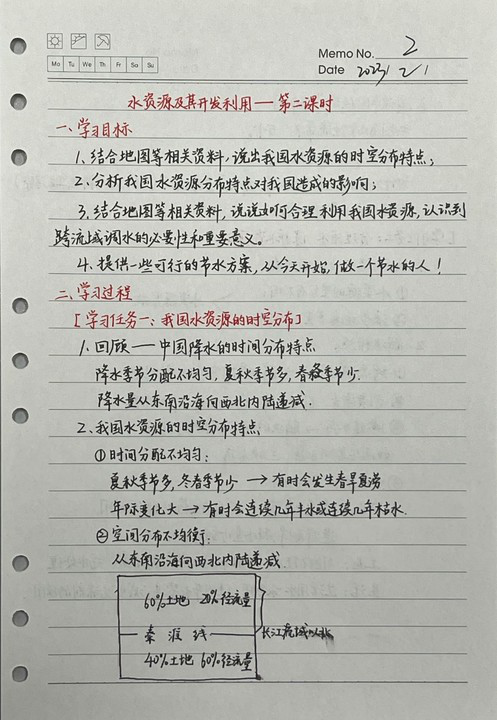 Memo No. 2
Mo Tu We Th Fr Sa Su
Date 2023/2/1
水资源及其开发利用——第二课时
一、学习目标
1、结合地图等相关资料，说出我国水资源的时空分布特点；
2、分析我国水资源分布特点对我国造成的影响；
3、结合地图等相关资料，说说如何合理利用我国水资源，认识到
跨流域调水的必要性和重要意义。
4、提供一些可行的节水方案，从今天开始，做一个节水的人！
二、学习过程
[学习任务一：我国水资源的时空分布]
1、回顾——中国降水的时间分布特点
降水季节分配不均匀，夏秋季节多，春季节少.
降水量从东南沿海向西北内陆递减.
2、我国水资源的时空分布特点
①时间分配不均匀：
夏秋季节多，冬春季节少 → 有时会发生春旱夏涝
年际变化大 → 有时会连续几年丰水或连续几年枯水.
②空间分布不均衡：
从东南沿海向西北内陆递减
60%土地 20%径流量
秦淮线
长江流域以北
40%土地 60%径流量